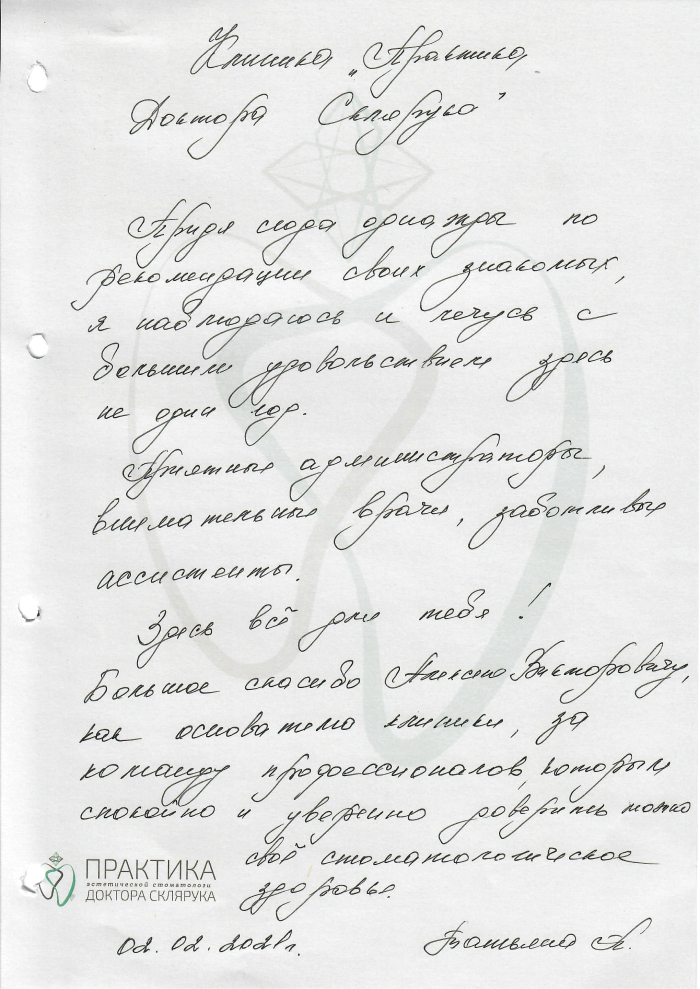 Клиника „Практика
Доктора Склярука"
Придя сюда однажды по
рекомендации своих знакомых,
я наблюдаюсь и лечусь с
большим удовольствием здесь
не один год.
Приятные администраторы,
внимательные врачи, заботливые
ассистенты.
Здесь всё для тебя!
Большое спасибо Алексею Викторовичу,
как основателю клиники, за
команду профессионалов, которым
спокойно и уверенно доверить можно
своё стоматологическое
здоровье.
ПРАКТИКА
эстетической стоматологии
ДОКТОРА СКЛЯРУКА
02.02.2021г.
Татьяна А.